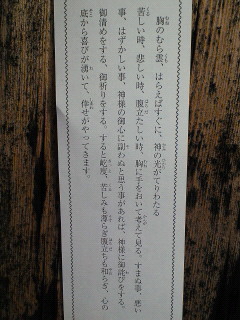 胸のむら雲、はらえばすぐに、神の光がてりわたる
苦しい時、悲しい時、腹立たしい時、胸に手をおいて考えて見る。すまぬ事、悪い
事、はずかしい事、神様の御心に副わぬと思う事があれば、神様に御詫びをする。
御清めをする、御祈りをする。すると屹度、苦しみも薄らぎ腹立ちも和らぎ、心の
底から喜びが湧いて、倖せがやってきます。